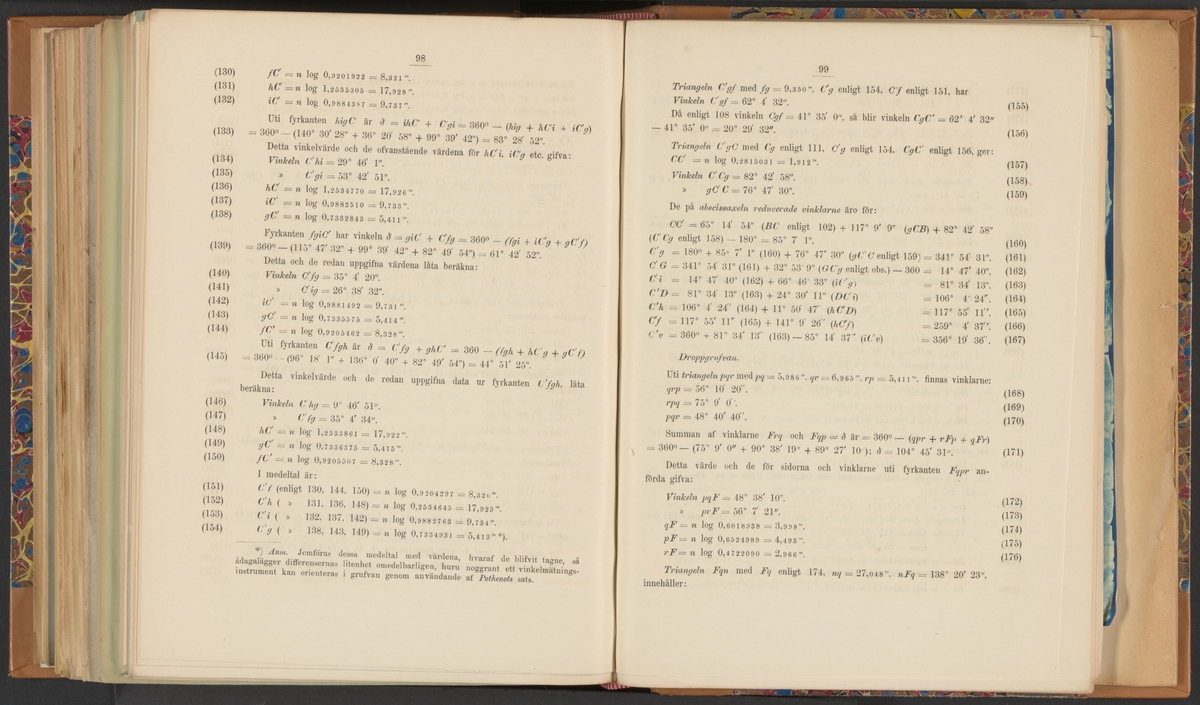 98
(130) fC′ = n log 0,9201922 = 8,321″.
(131) hC′ = n log 1,2535305 = 17,928″.
(132) iC′ = n log 0,9884397 = 9,737″.
Uti fyrkanten higC′ är δ = ihC′ + C′gi = 360° — (hig + hC′i + iC′g)
(133) = 360° — (140° 30′ 28″ + 36° 20′ 58″ + 99° 39′ 42″) = 83° 28′ 52″.
Detta vinkelvärde och de ofvanstående värdena för hC′i, iC′g etc. gifva:
(134) Vinkeln C′hi = 29° 46′ 1″.
(135) » C′gi = 53° 42′ 51″.
(136) hC′ = n log 1,2534770 = 17,926″.
(137) iC′ = n log 0,9882510 = 9,733″.
(138) gC′ = n log 0,7332843 = 5,411″.
Fyrkanten fgiC′ har vinkeln δ = giC′ + C′fg = 360° — (fgi + iC′g + gC′f)
(139) = 360° — (115° 47′ 32″ + 99° 39′ 42″ + 82° 49′ 54″) = 61° 42′ 52″.
Detta och de redan uppgifna värdena låta beräkna:
(140) Vinkeln C′fg = 35° 4′ 20″.
(141) » C′ig = 26° 38′ 32″.
(142) iC′ = n log 0,9881492 = 9,731″.
(143) gC′ = n log 0,7335575 = 5,414″.
(144) fC′ = n log 0,9205462 = 8,328″.
Uti fyrkanten C′fgh är δ = C′fg + ghC′ = 360 — (fgh + hC′g + gC′f)
(145) = 360° — (96° 18′ 1″ + 136° 0′ 40″ + 82° 49′ 54″) = 44° 51′ 25″.
Detta vinkelvärde och de redan uppgifna data ur fyrkanten C′fgh, låta
beräkna:
(146) Vinkeln C′hg = 9° 46′ 51″.
(147) » C′fg = 35° 4′ 34″.
(148) hC′ = n log 1,2533861 = 17,922″.
(149) gC′ = n log 0,7336375 = 5,415″.
(150) fC′ = n log 0,9205507 = 8,328″.
I medeltal är:
(151) C′f (enligt 130, 144, 150) = n log 0,9204297 = 8,326″.
(152) C′h ( » 131, 136, 148) = n log 1,2534645 = 17,925″.
(153) C′i ( » 132, 137, 142) = n log 0,9882763 = 9,734″.
(154) C′g ( » 138, 143, 149) = n log 0,7334931 = 5,413″*).
*) Anm. Jemföras dessa medeltal med värdena, hvaraf de blifvit tagne, så
ådagalägger differensernas litenhet omedelbarligen, huru noggrant ett vinkelmätnings-
instrument kan orienteras i grufvan genom användande af Pothenots sats.
99
Triangeln C′gf med fg = 9,350″, C′g enligt 154, C′f enligt 151, har
Vinkeln C′gf = 62° 4′ 32″. (155)
Då enligt 108 vinkeln Cgf = 41° 35′ 0″, så blir vinkeln CgC′ = 62° 4′ 32″
— 41° 35′ 0″ = 20° 29′ 32″. (156)
Triangeln C′gC med Cg enligt 111, C′g enligt 154, CgC′ enligt 156, ger:
CC′ = n log 0,2815031 = 1,912″. (157)
Vinkeln C′Cg = 82° 42′ 58″. (158)
» gC′C = 76° 47′ 30″. (159)
De på abscissaxeln reducerade vinklarne äro för:
CC′ = 65° 14′ 54″ (BC enligt 102) + 117° 9′ 9″ (gCB) + 82° 42′ 58″
(C′Cg enligt 158) — 180° = 85° 7′ 1″. (160)
C′g = 180° + 85° 7′ 1″ (160) + 76° 47′ 30″ (gC′C enligt 159) = 341° 54′ 31″. (161)
C′G = 341° 54′ 31″ (161) + 32° 53′ 9″ (GC′g enligt obs.) — 360 = 14° 47′ 40″. (162)
C′i = 14° 47′ 40″ (162) + 66° 46′ 33″ (iC′g) = 81° 34′ 13″. (163)
C′D = 81° 34′ 13″ (163) + 24° 30′ 11″ (DC′i) = 106° 4′ 24″. (164)
C′h = 106° 4′ 24″ (164) + 11° 50′ 47″ (hC′D) = 117° 55′ 11″. (165)
C′f = 117° 55′ 11″ (165) + 141° 9′ 26″ (hC′f) = 259° 4′ 37″. (166)
C′v = 360° + 81° 34′ 13″ (163) — 85° 14′ 37″ (iC′v) = 356° 19′ 36″. (167)
Droppgrufvan.
Uti triangeln pqr med pq = 5,986″, qr = 6,965″, rp = 5,411″, finnas vinklarne:
qrp = 56° 10′ 20″. (168)
rpq = 75° 9′ 0″. (169)
pqr = 48° 40′ 40″. (170)
Summan af vinklarne Frq och Fqp = δ är = 360° — (qpr + rFp + qFr)
= 360° — (75° 9′ 0″ + 90° 38′ 19″ + 89° 27′ 10″); δ = 104° 45′ 31″. (171)
Detta värde och de för sidorna och vinklarne uti fyrkanten Fqpr an-
förda gifva:
Vinkeln pqF = 48° 38′ 10″. (172)
» prF = 56° 7′ 21″. (173)
qF = n log 0,6018938 = 3,998″. (174)
pF = n log 0,6524989 = 4,493″. (175)
rF = n log 0,4722090 = 2,966″. (176)
Triangeln Fqn med Fq enligt 174, nq = 27,048″, nFq = 138° 20′ 23″,
innehåller: